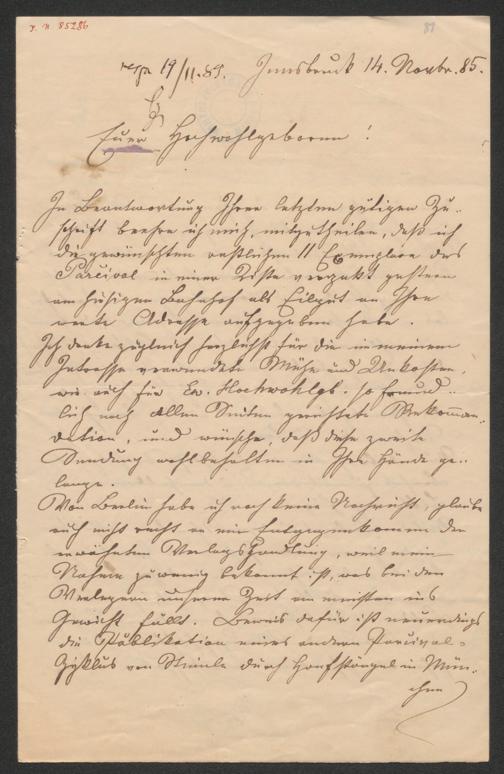 I. N. 85286
81
resp 19/11.85. Innsbruck 14. Novbr. 85.
Euer Hochwohlgeboren!
In Beantwortung Ihrer letzten gütigen Zu-
schrift beehre ich mich, mitzutheilen, daß ich
die gewünschten restlichen 11 Exemplare des
Parcival in einer Kiste verpakt gestern
am hiesigen Bahnhof als Eilgut an Ihre
werte Adresse aufgegeben habe.
Ich danke zugleich herzlichst für die in meinem
Interesse verwendete Mühe und Unkosten,
wie auch für Ew. Hochwohlgb. so freund-
lich nach allen Seiten gerichtete Rekomman-
dation, und wünsche, daß diese zweite
Sendung wohlbehalten in Ihre Hände ge-
lange.
Von Berlin habe ich noch keine Nachricht, glaube
auch nicht recht an ein Entgegenkommen der
erwähnten Verlagshandlung, weil mein
Name zu wenig bekannt ist, was bei den
Verlegern unserer Zeit am meisten ins
Gewicht fällt. Beweis dafür ist neuerdings
die Publikation eines andern Parcival-
Zyklus von Steinle durch Hanfstängel in Mün-
chen